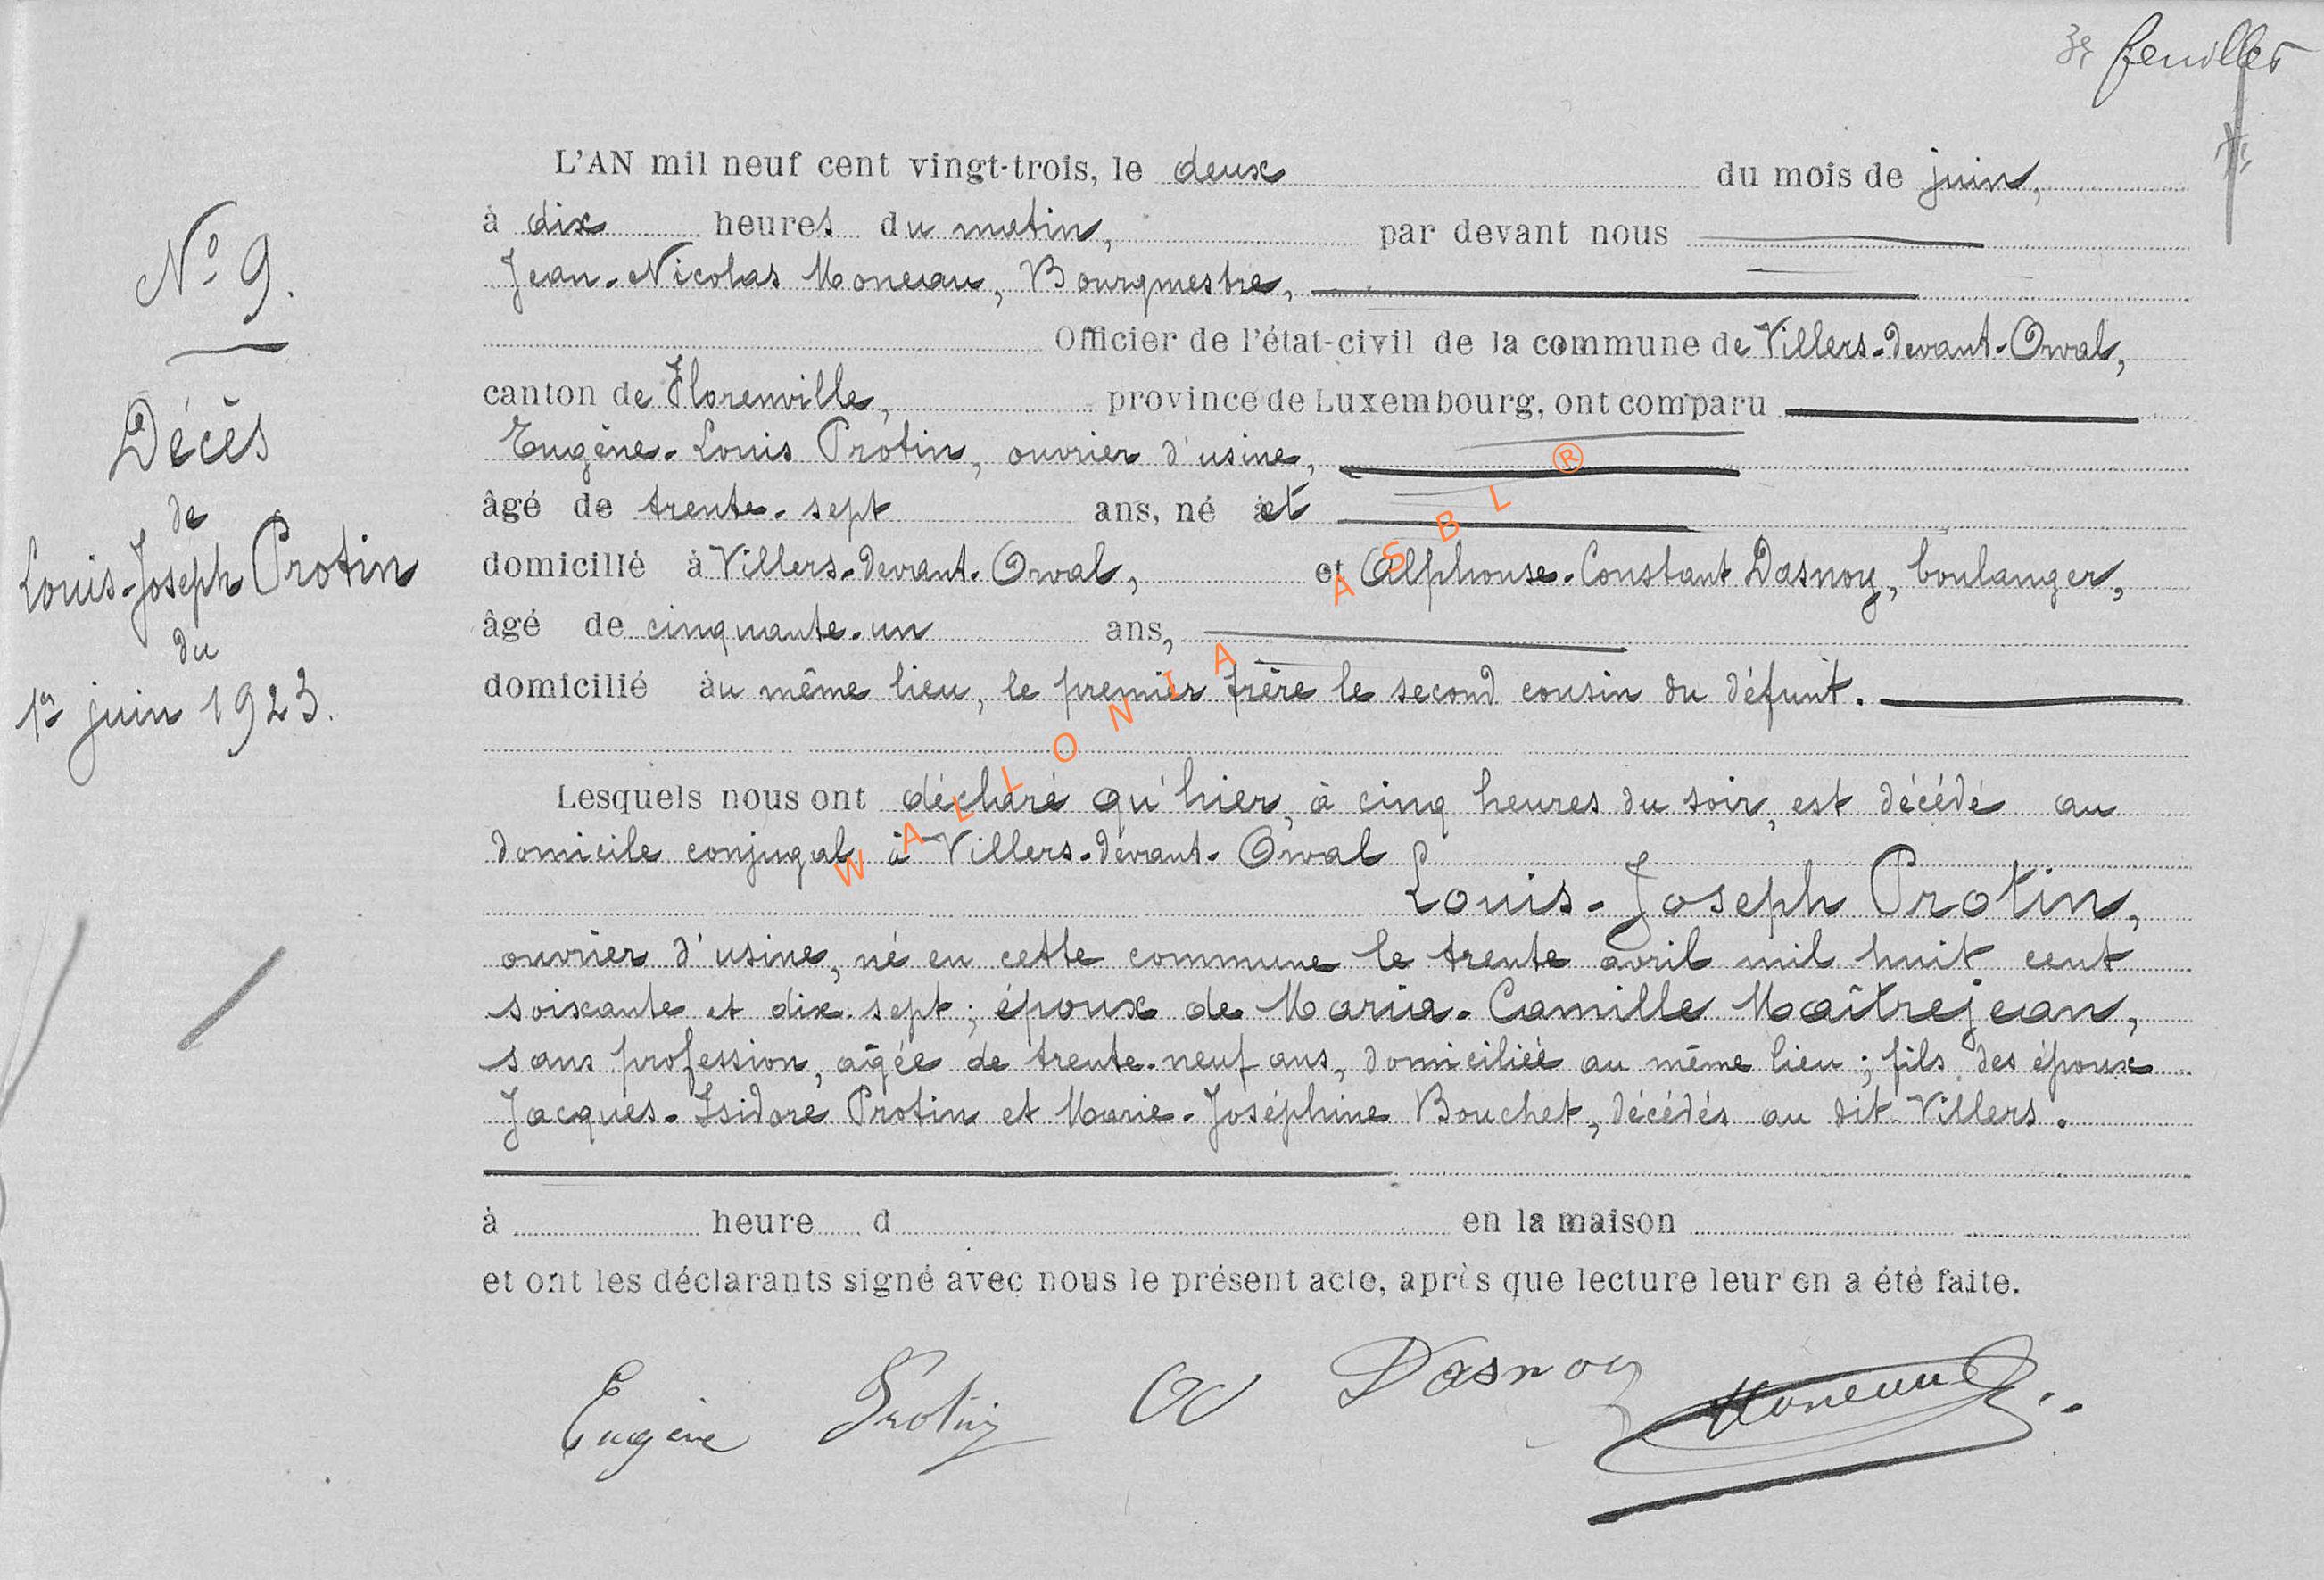 3e feuillet
L'AN mil neuf cent vingt-trois, le deux du mois de juin,
à dix heures du matin, par devant nous
Jean-Nicolas Moneau, Bourgmestre,
Officier de l'état-civil de la commune de Villers-devant-Orval,
canton de Florenville, province de Luxembourg, ont comparu
Eugène-Louis Protin, ouvrier d'usine,
âgé de trente-sept ans, né et
domicilié à Villers-devant-Orval, et Alphonse-Constant Dasnoy, boulanger,
âgé de cinquante-un ans,
domicilié au même lieu, le premier frère le second cousin du défunt.
Lesquels nous ont déclaré qu'hier, à cinq heures du soir, est décédé au
domicile conjugal à Villers-devant-Orval
Louis-Joseph Protin,
ouvrier d'usine, né en cette commune le trente avril mil huit cent
soixante et dix-sept; époux de Maria-Camille Maîtrejean,
sans profession, âgée de trente-neuf ans, domiciliée au même lieu; fils des époux
Jacques-Isidore Protin et Marie-Joséphine Bouchet, décédés au dit Villers.
à heure d en la maison
et ont les déclarants signé avec nous le présent acte, après que lecture leur en a été faite.
Eugène Protin Dasnoy Moneau
No 9.
Décès
de
Louis-Joseph Protin
du
1er juin 1923.
WALLONIA ASBL ®